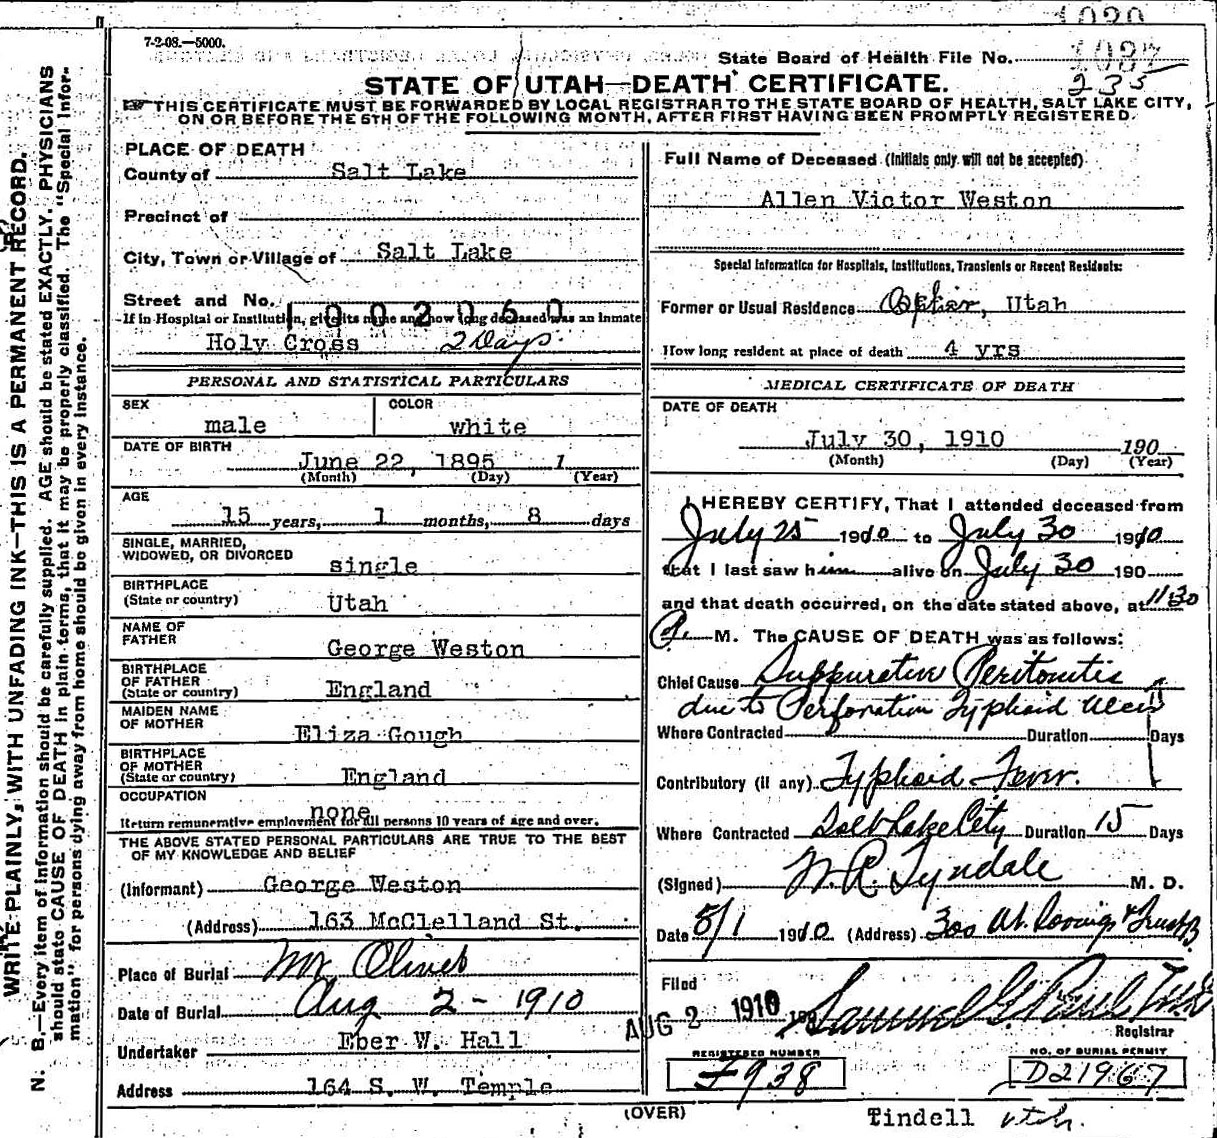 1020
7-2-08.—5000.
State Board of Health File No. 1087
235
STATE OF UTAH—DEATH CERTIFICATE.
THIS CERTIFICATE MUST BE FORWARDED BY LOCAL REGISTRAR TO THE STATE BOARD OF HEALTH, SALT LAKE CITY,
ON OR BEFORE THE 5TH OF THE FOLLOWING MONTH, AFTER FIRST HAVING BEEN PROMPTLY REGISTERED.
PLACE OF DEATH
County of Salt Lake
Precinct of
City, Town or Village of Salt Lake
Street and No.
1002060
If in Hospital or Institution, give its name and how long deceased was an inmate
Holy Cross 2 Days.
PERSONAL AND STATISTICAL PARTICULARS
SEX male COLOR white
DATE OF BIRTH
June 22, 1895 1
(Month) (Day) (Year)
AGE
15 years, 1 months, 8 days
SINGLE, MARRIED,
WIDOWED, OR DIVORCED single
BIRTHPLACE
(State or country) Utah
NAME OF
FATHER George Weston
BIRTHPLACE
OF FATHER
(State or country) England
MAIDEN NAME
OF MOTHER Eliza Gough
BIRTHPLACE
OF MOTHER
(State or country) England
OCCUPATION none
Return remunerative employment for all persons 10 years of age and over.
THE ABOVE STATED PERSONAL PARTICULARS ARE TRUE TO THE BEST
OF MY KNOWLEDGE AND BELIEF
(Informant) George Weston
(Address) 163 McClelland St.
Place of Burial Mt Olivet
Date of Burial Aug 2 - 1910
Undertaker Eber W. Hall
Address 164 S. W. Temple
Full Name of Deceased (Initials only will not be accepted)
Allen Victor Weston
Special Information for Hospitals, Institutions, Transients or Recent Residents:
Former or Usual Residence Ophir, Utah
How long resident at place of death 4 yrs
MEDICAL CERTIFICATE OF DEATH
DATE OF DEATH
July 30, 1910 190
(Month) (Day) (Year)
I HEREBY CERTIFY, That I attended deceased from
July 25 1910 to July 30 1910
that I last saw him alive on July 30 190
and that death occurred, on the date stated above, at 11:30
P. M. The CAUSE OF DEATH was as follows:
Chief Cause Suppurative Peritonitis
due to Perforation Typhoid Ulcer
Where Contracted Duration 1 Days
Contributory (if any) Typhoid Fever.
Where Contracted Salt Lake City Duration 15 Days
(Signed) W. R. Tyndale M. D.
Date 8/1 1910 (Address) 300 Ut. Savings & Trust B.
Filed
AUG 2 1910 190 Samuel G. Paul
Registrar
REGISTERED NUMBER
F938
NO. OF BURIAL PERMIT
D21967
(OVER)
Tindell Utah.
WRITE PLAINLY, WITH UNFADING INK—THIS IS A PERMANENT RECORD.
N. B.—Every item of information should be carefully supplied. AGE should be stated EXACTLY. PHYSICIANS
should state CAUSE OF DEATH in plain terms, that it may be properly classified. The "Special Infor-
mation" for persons dying away from home should be given in every instance.